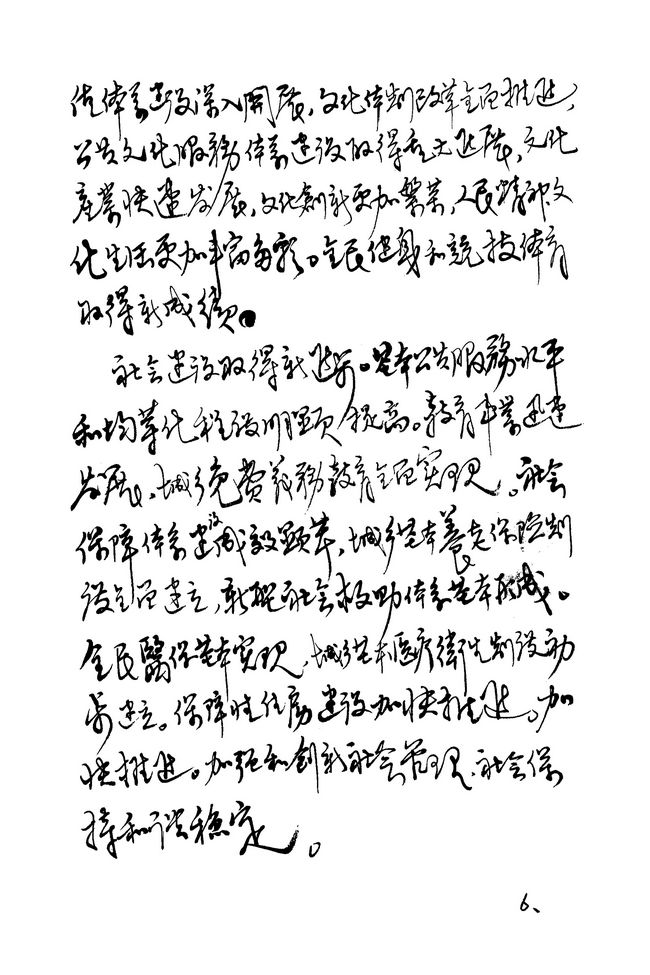 值体系建设深入開展，文化体制改革全面推进，
公共文化服務体系建设取得重大进展，文化
産業快速发展，文化創新更加繁荣，人民精神文
化生活更加丰富多彩。全民健身和競技体育
取得新成绩。
社会建设取得新进步。基本公共服務水平
和均等化程度明顯提高。教育事業迅速
发展，城乡免費義務教育全面实現。社会
保障体系建设成效顯著，城乡基本養老保险制
度全面建立，新型社会救助体系基本形成。
全民醫保基本实現，城乡基本医疗衛生制度初
步建立。保障性住房建设加快推进。加
快推进。加强和創新社会管理，社会保
持和谐穩定。
6、